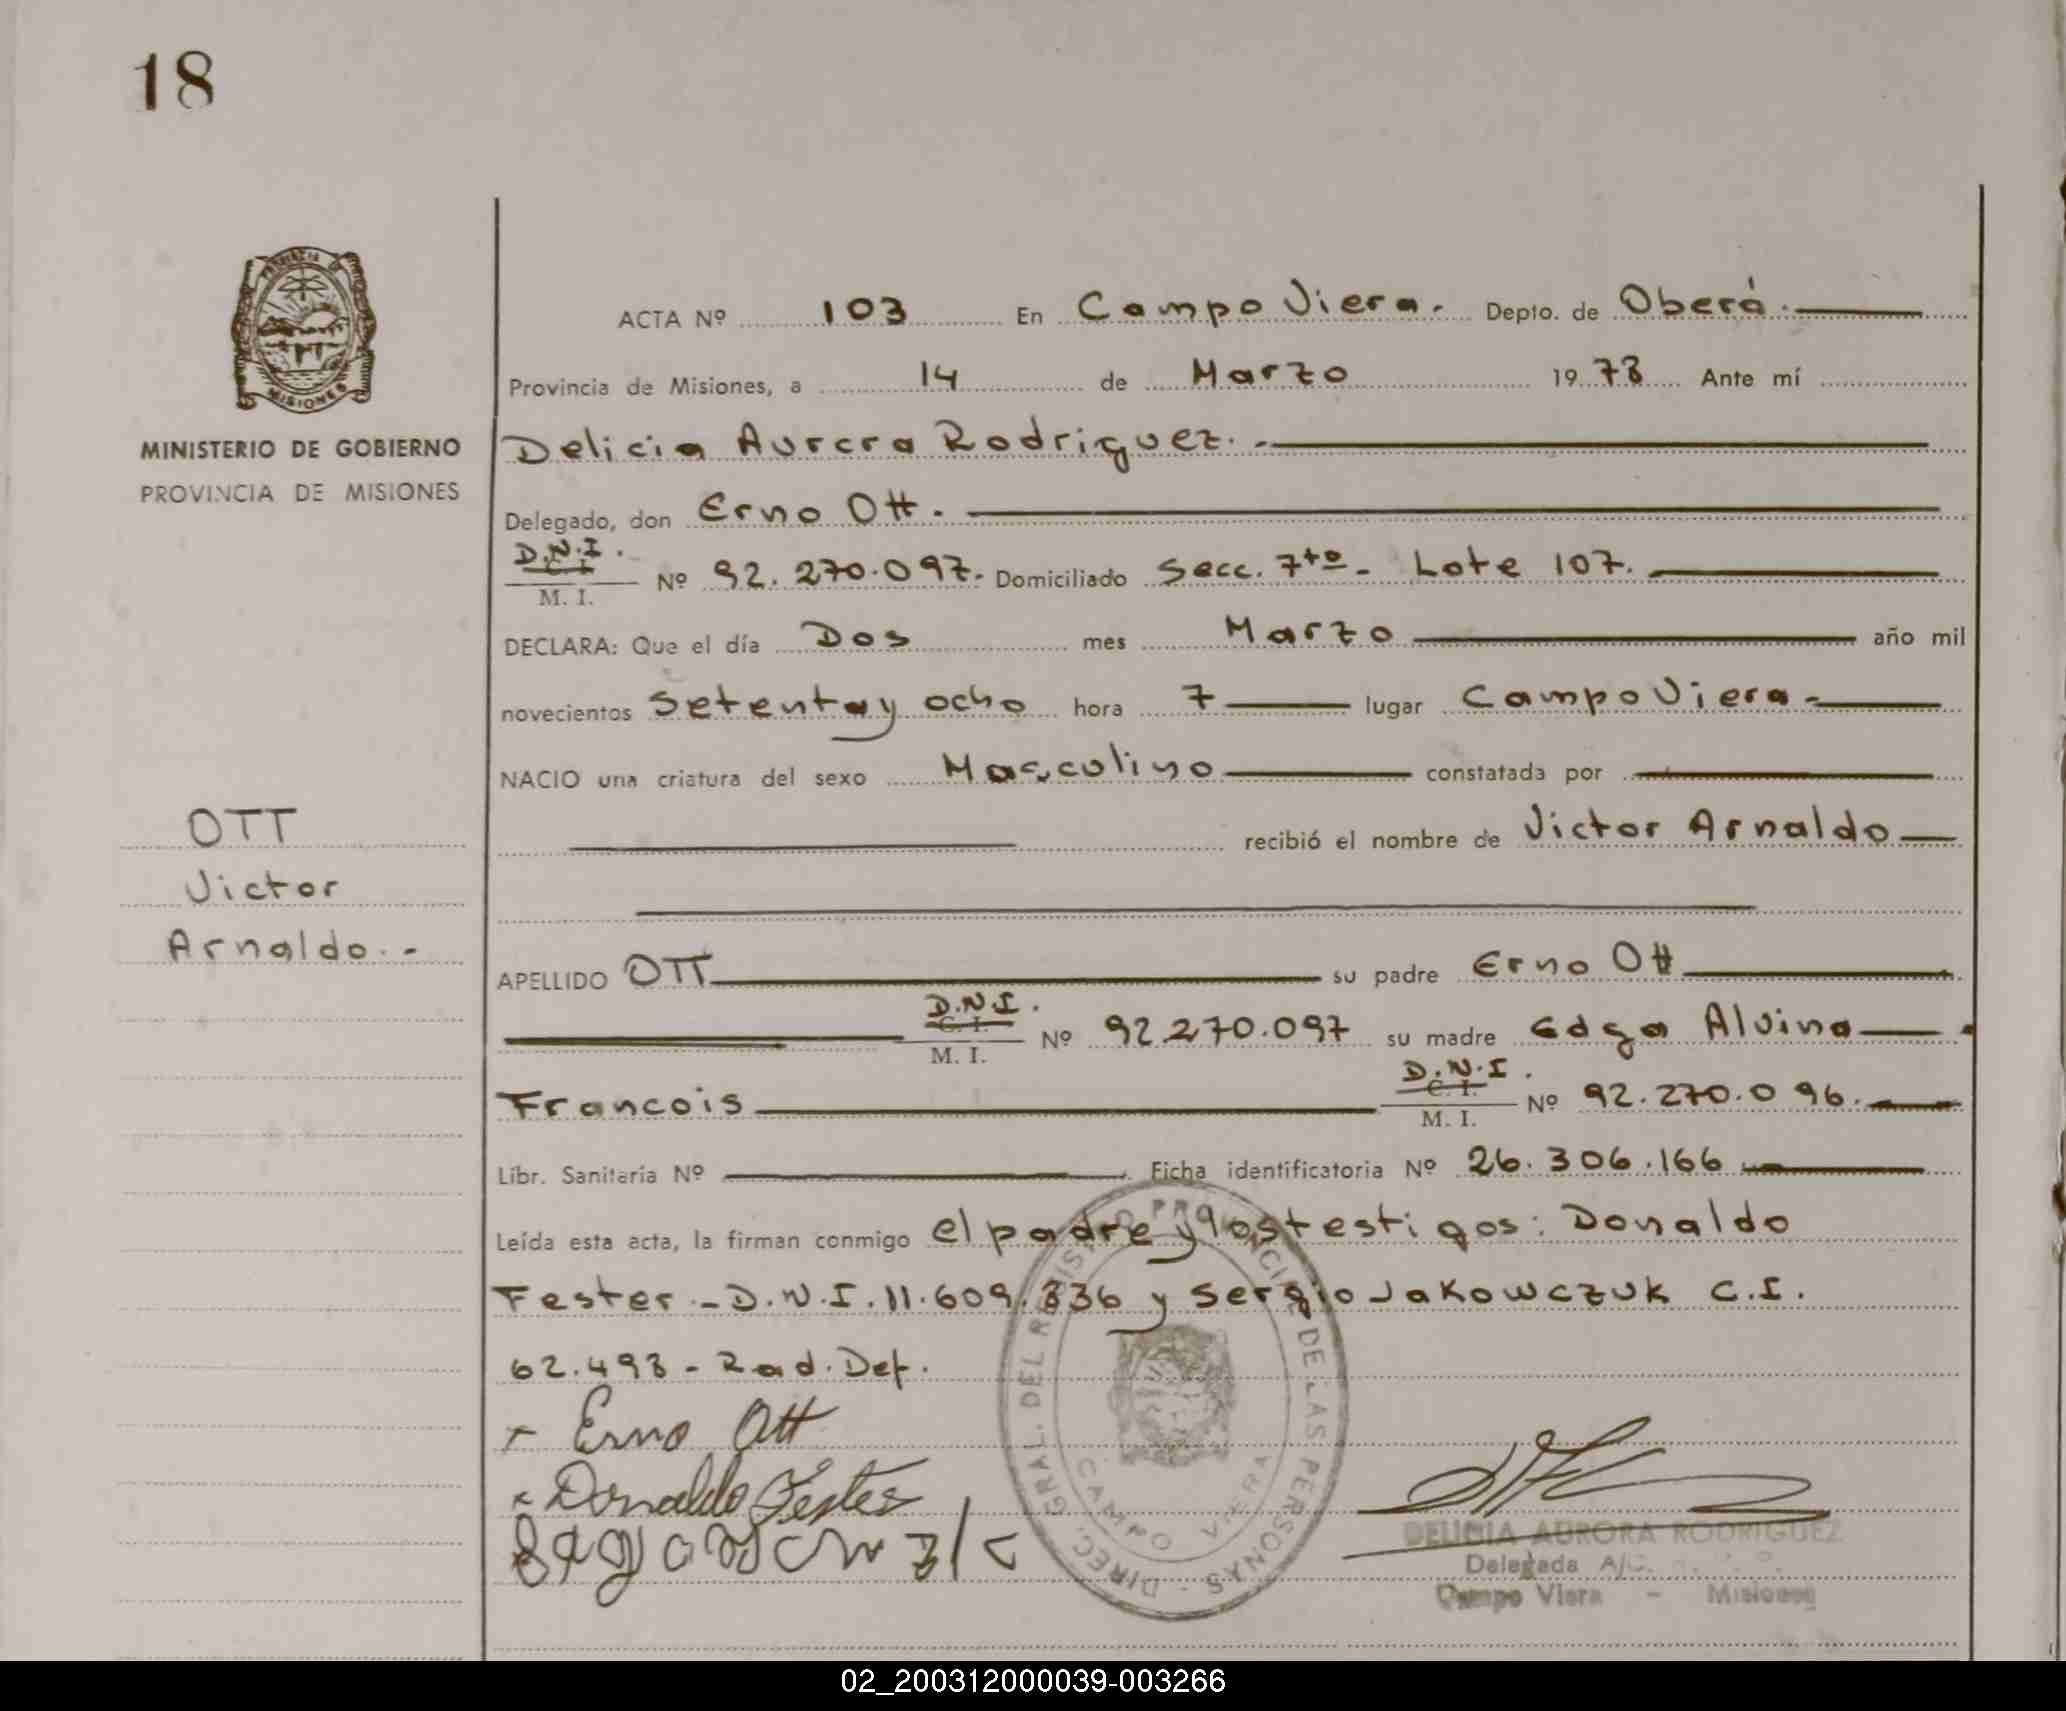 18
ACTA Nº 103 En Campo Viera. Depto. de Oberá.
Provincia de Misiones, a 14 de Marzo 1978 Ante mí
MINISTERIO DE GOBIERNO
PROVINCIA DE MISIONES
Delicia Aurora Rodriguez.-
Delegado, don Erno Ott.
D.N.I. C. I. M. I. Nº 92.270.097.- Domiciliado Secc. 7ta- Lote 107.
DECLARA: Que el día Dos mes Marzo año mil
novecientos setenta y ocho hora 7 lugar Campo Viera-
NACIO una criatura del sexo Masculino constatada por
recibió el nombre de Victor Arnaldo
OTT
Victor
Arnaldo.-
APELLIDO OTT su padre Erno Ott
D.N.I. C. I. M. I. Nº 92.270.097 su madre Edga Alvina
Francois D.N.I. C. I. M. I. Nº 92.270.096.
Libr. Sanitaria Nº Ficha identificatoria Nº 26.306.166
Leída esta acta, la firman conmigo el padre y los testigos: Donaldo
Fester - D.N.I. 11.609.836 y Sergio Jakowczuk C.I.
62.498 - Rad. Def.
x Erno Ott
x Donaldo Fester
DIREC. GRAL. DEL REGISTRO PROVINCIAL DE LAS PERSONAS
CAMPO VIERA
DELICIA AURORA RODRIGUEZ
Delegada
Campo Viera - Misiones
02_200312000039-003266